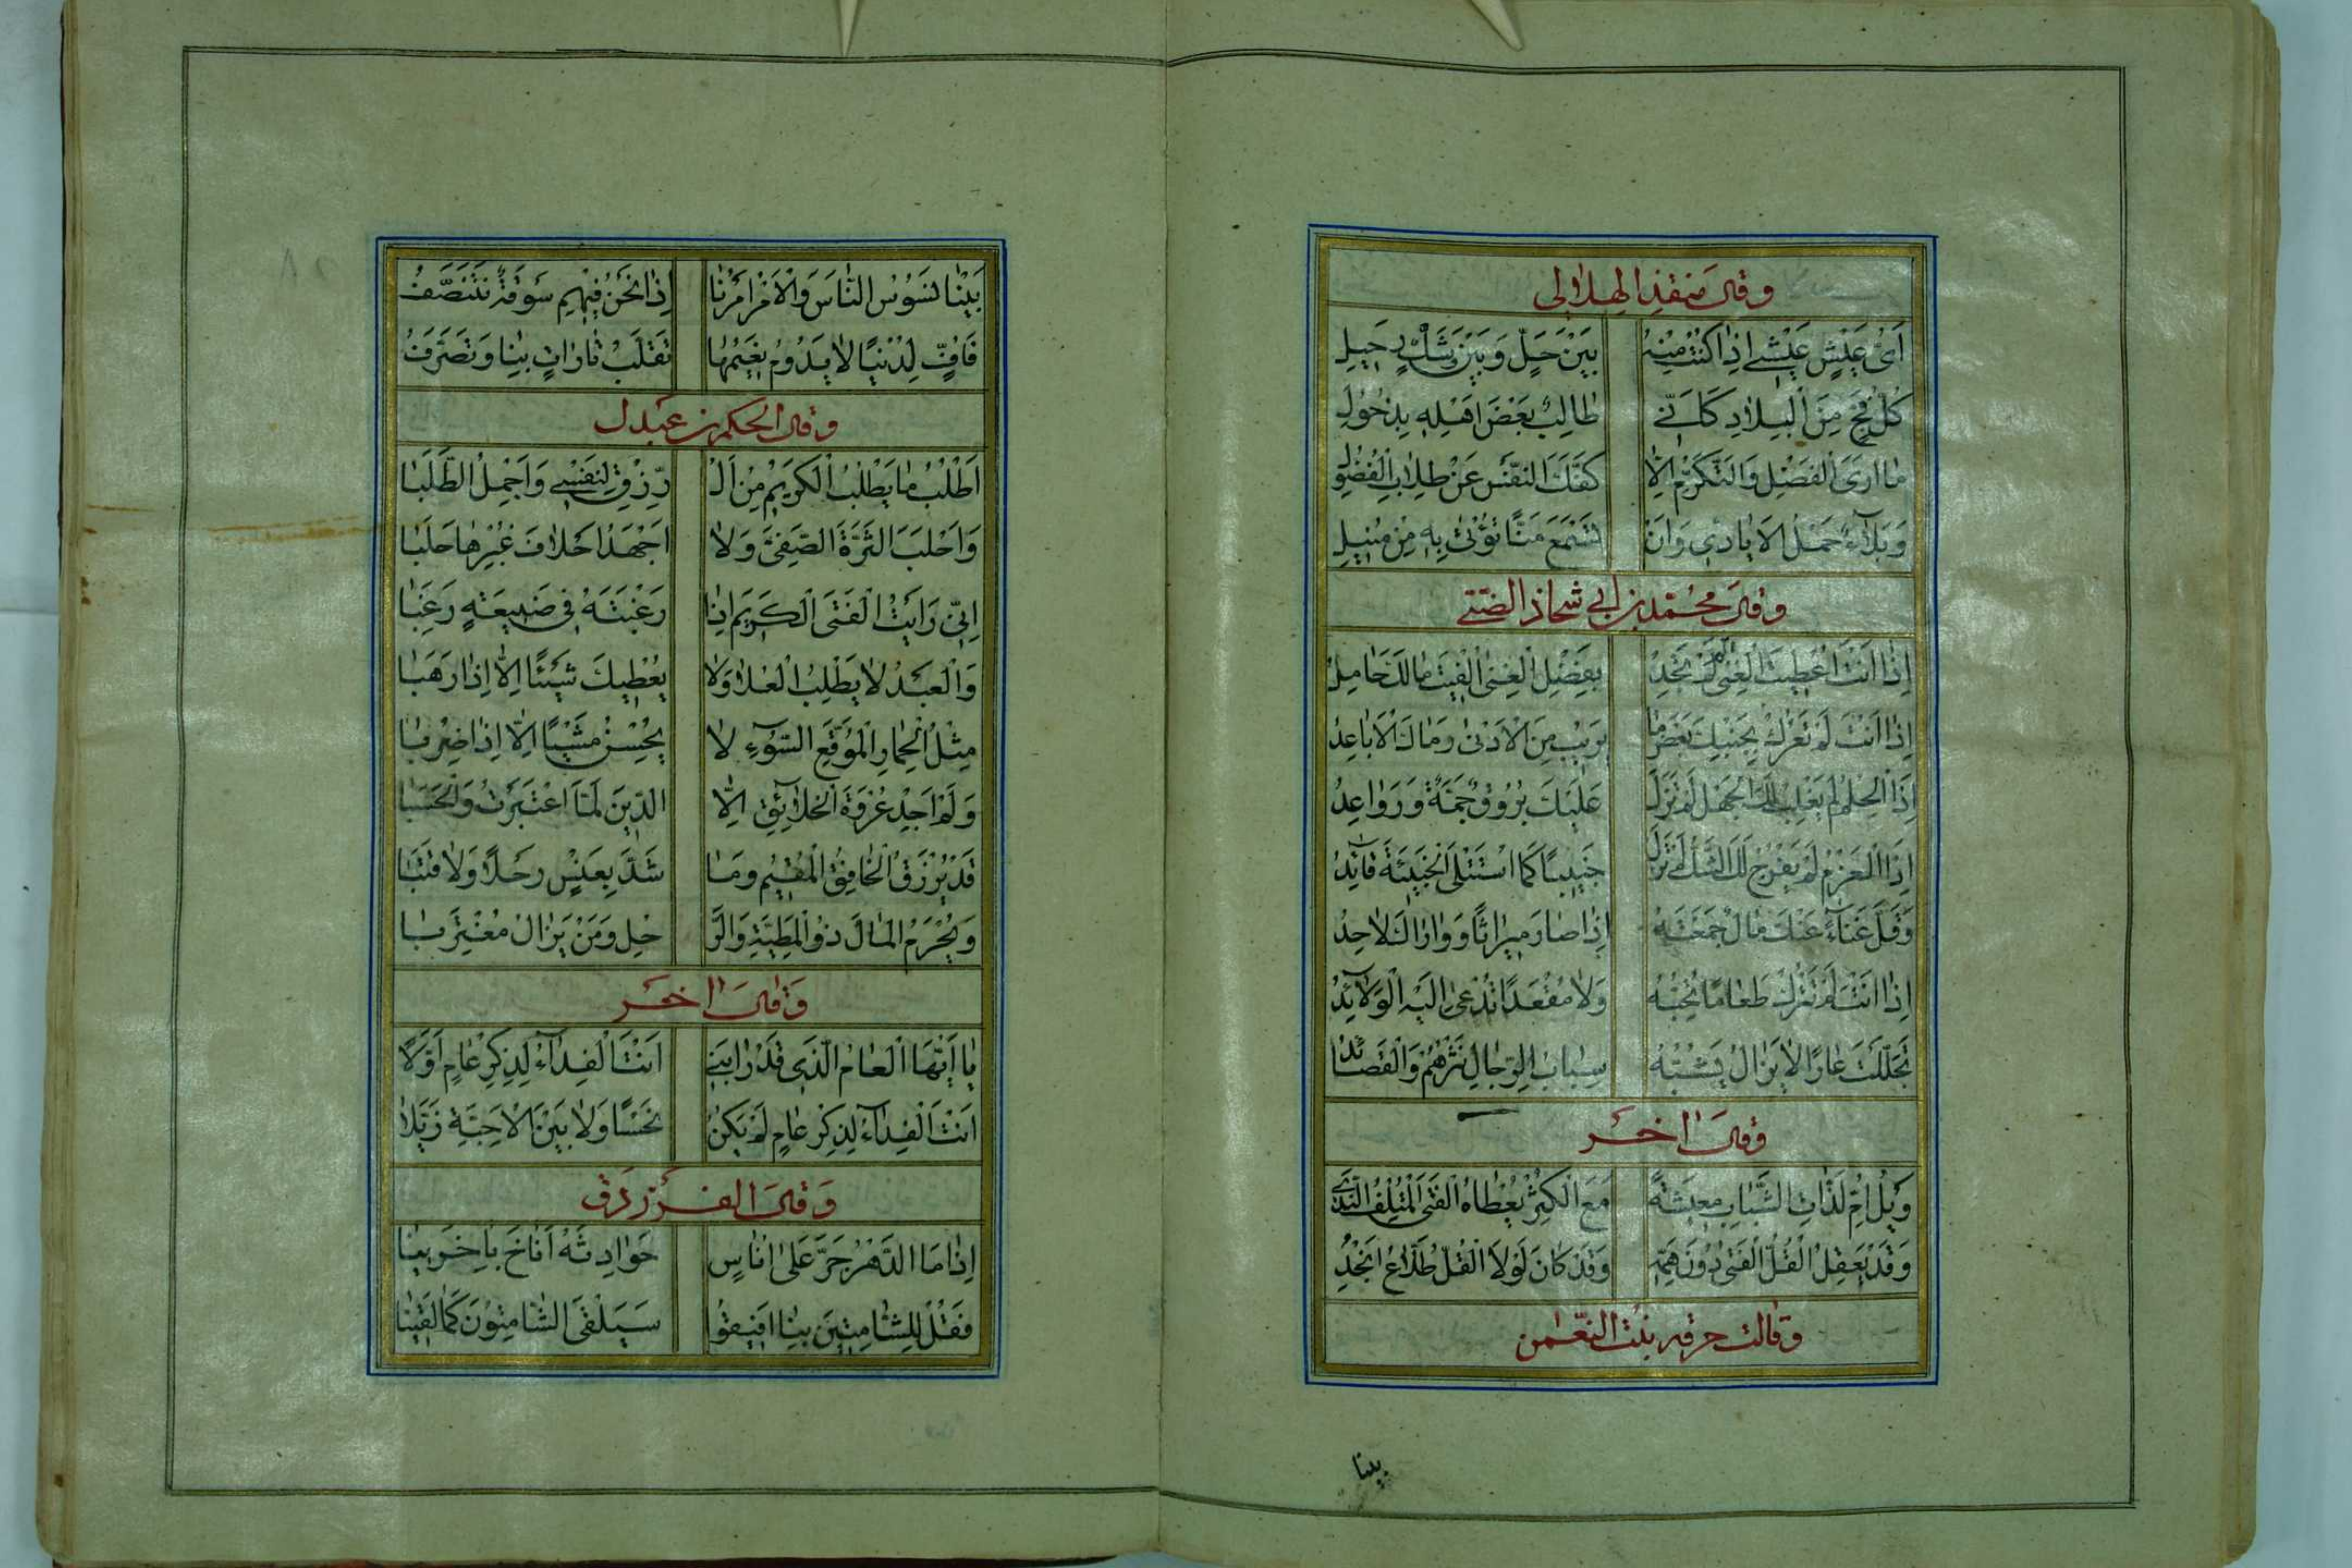 وقال منقذ الهلالي
اَيُّ عَيْشٍ عَيْشي اِذا كُنْتُ مِنْهُ بَيْنَ حَلٍّ وَبَيْنَ وَشْكِ رَحيلِ
كُلُّ فَجٍّ مِنَ الْبِلادِ كَاَنّي طالِبٌ بَعْضَ اَهْلِهِ بِذُحُولِ
ما اَرَى الْفَضْلَ وَالتَّكَرُّمَ اِلّا كَفَّكَ النَّفْسَ عَنْ طِلابِ الْفُضُولِ
وَبَلآءٌ حَمْلُ الْاَيادي وَاَنْ تَسْمَعَ مَنًّا تُؤْتى بِهِ مِنْ مُنيلِ
وقال محمّد بن ابي شحاذ الضبّي
اِذا اَنْتَ اُعْطيتَ الْغِنى ثُمَّ لَمْ تَجُدْ بِفَضْلِ الْغِنى اُلْفيتَ مالَكَ حامِدُ
اِذا اَنْتَ لَمْ تَعْرُكْ بِجَنْبِكَ بَعْضَ ما يَريبُ مِنَ الْاَدْنى رَماكَ الْاَباعِدُ
اِذَا الْحِلْمُ لَمْ يَغْلِبْ لَكَ الْجَهْلَ لَمْ تَزَلْ عَلَيْكَ بُرُوقٌ جَمَّةٌ وَرَواعِدُ
اِذَا الْعَزْمُ لَمْ يَفْرُجْ لَكَ الشَّكَّ لَمْ تَزَلْ جَنيبًا كَمَا اسْتَتْلَى الْجَنيبَةَ قآئِدُ
وَقَلَّ غَنآءً عَنْكَ مالٌ جَمَعْتَهُ اِذا صارَ ميراثًا وَواراكَ لاحِدُ
اِذا اَنْتَ لَمْ تَتْرُكْ طَعامًا تُحِبُّهُ وَلا مَقْعَدًا تُدْعى اِلَيْهِ الْوَلآئِدُ
تَجَلَّلْتَ عارًا لا يَزالُ يَشُبُّهُ سِبابُ الرِّجالِ نَثْرُهُمْ وَالْقَصائدُ
وقال اخر
وَيْلُ اُمِّ لَذّاتِ الشَّبابِ مَعيشَةً مَعَ الْكُثْرِ يُعْطاهُ الْفَتَى الْمُتْلِفُ النَّدي
وَقَدْ يَعْقِلُ الْقُلُّ الْفَتى دُونَ هَمِّهِ وَقَدْ كانَ لَوْلَا الْقُلُّ طَلّاعَ اَنْجُدِ
وقالت حرقه بنت النعمن
بينا
بَيْنا نَسُوسُ النّاسَ وَالْاَمْرُ اَمْرُنا اِذا نَحْنُ فيهِمْ سُوقَةٌ نَتَنَصَّفُ
فَاُفٍّ لِدُنْيًا لا يَدُومُ نَعيمُها تَقَلَّبُ تاراتٍ بِنا وَتَصَرَّفُ
وقال الحكم بن عبدل
اَطْلُبُ ما يَطْلُبُ الْكَريمُ مِنَ الْ رِّزْقِ لِنَفْسي وَاُجْمِلُ الطَّلَبا
وَاَحْلُبُ الثَّرَّةَ الصَّفِيَّ وَلا اَجْهَدُ اَخْلافَ غُبْرِها حَلَبا
اِنّي رَاَيْتُ الْفَتَى الْكَريمَ اِذا رَغَّبْتَهُ في صَنيعَةٍ رَغِبا
وَالْعَبْدُ لا يَطْلُبُ الْعُلا وَلا يُعْطيكَ شَيْئًا اِلّا اِذا رَهِبا
مِثْلُ الْحِمارِ الْمُوَقَّعِ السَّوْءِ لا يُحْسِنُ مَشْيًا اِلّا اِذا ضُرِبا
وَلَمْ اَجِدْ عُرْوَةَ الْخَلآئِقِ اِلّا الدّينَ لَمَّا اعْتَبَرْتُ وَالْحَسَبا
قَدْ يُرْزَقُ الْخافِضُ الْمُقيمُ وَما شَدَّ بِعَنْسٍ رَحْلًا وَلا قَتَبا
وَيُحْرَمُ الْمالَ ذُو الْمَطِيَّةِ وَالرَّ حْلِ وَمَنْ يَزالُ مُغْتَرِبا
وقال اخر
يا اَيُّهَا الْعامُ الَّذي قَدْ رابَني اَنْتَ الْفِدآءُ لِذِكْرِ عامٍ اَوَّلا
اَنْتَ الْفِدآءُ لِذِكْرِ عامٍ لَمْ يَكُنْ نَحْسًا وَلا بَيْنَ الْاَحِبَّةِ زَيَّلا
وقال الفرزدق
اِذا مَا الدَّهْرُ جَرَّ عَلى اُناسٍ حَوادِثَهُ اَناخَ بِاخَرينا
فَقُلْ لِلشّامِتينَ بِنا اَفيقُوا سَيَلْقَى الشّامِتُونَ كَما لَقينا